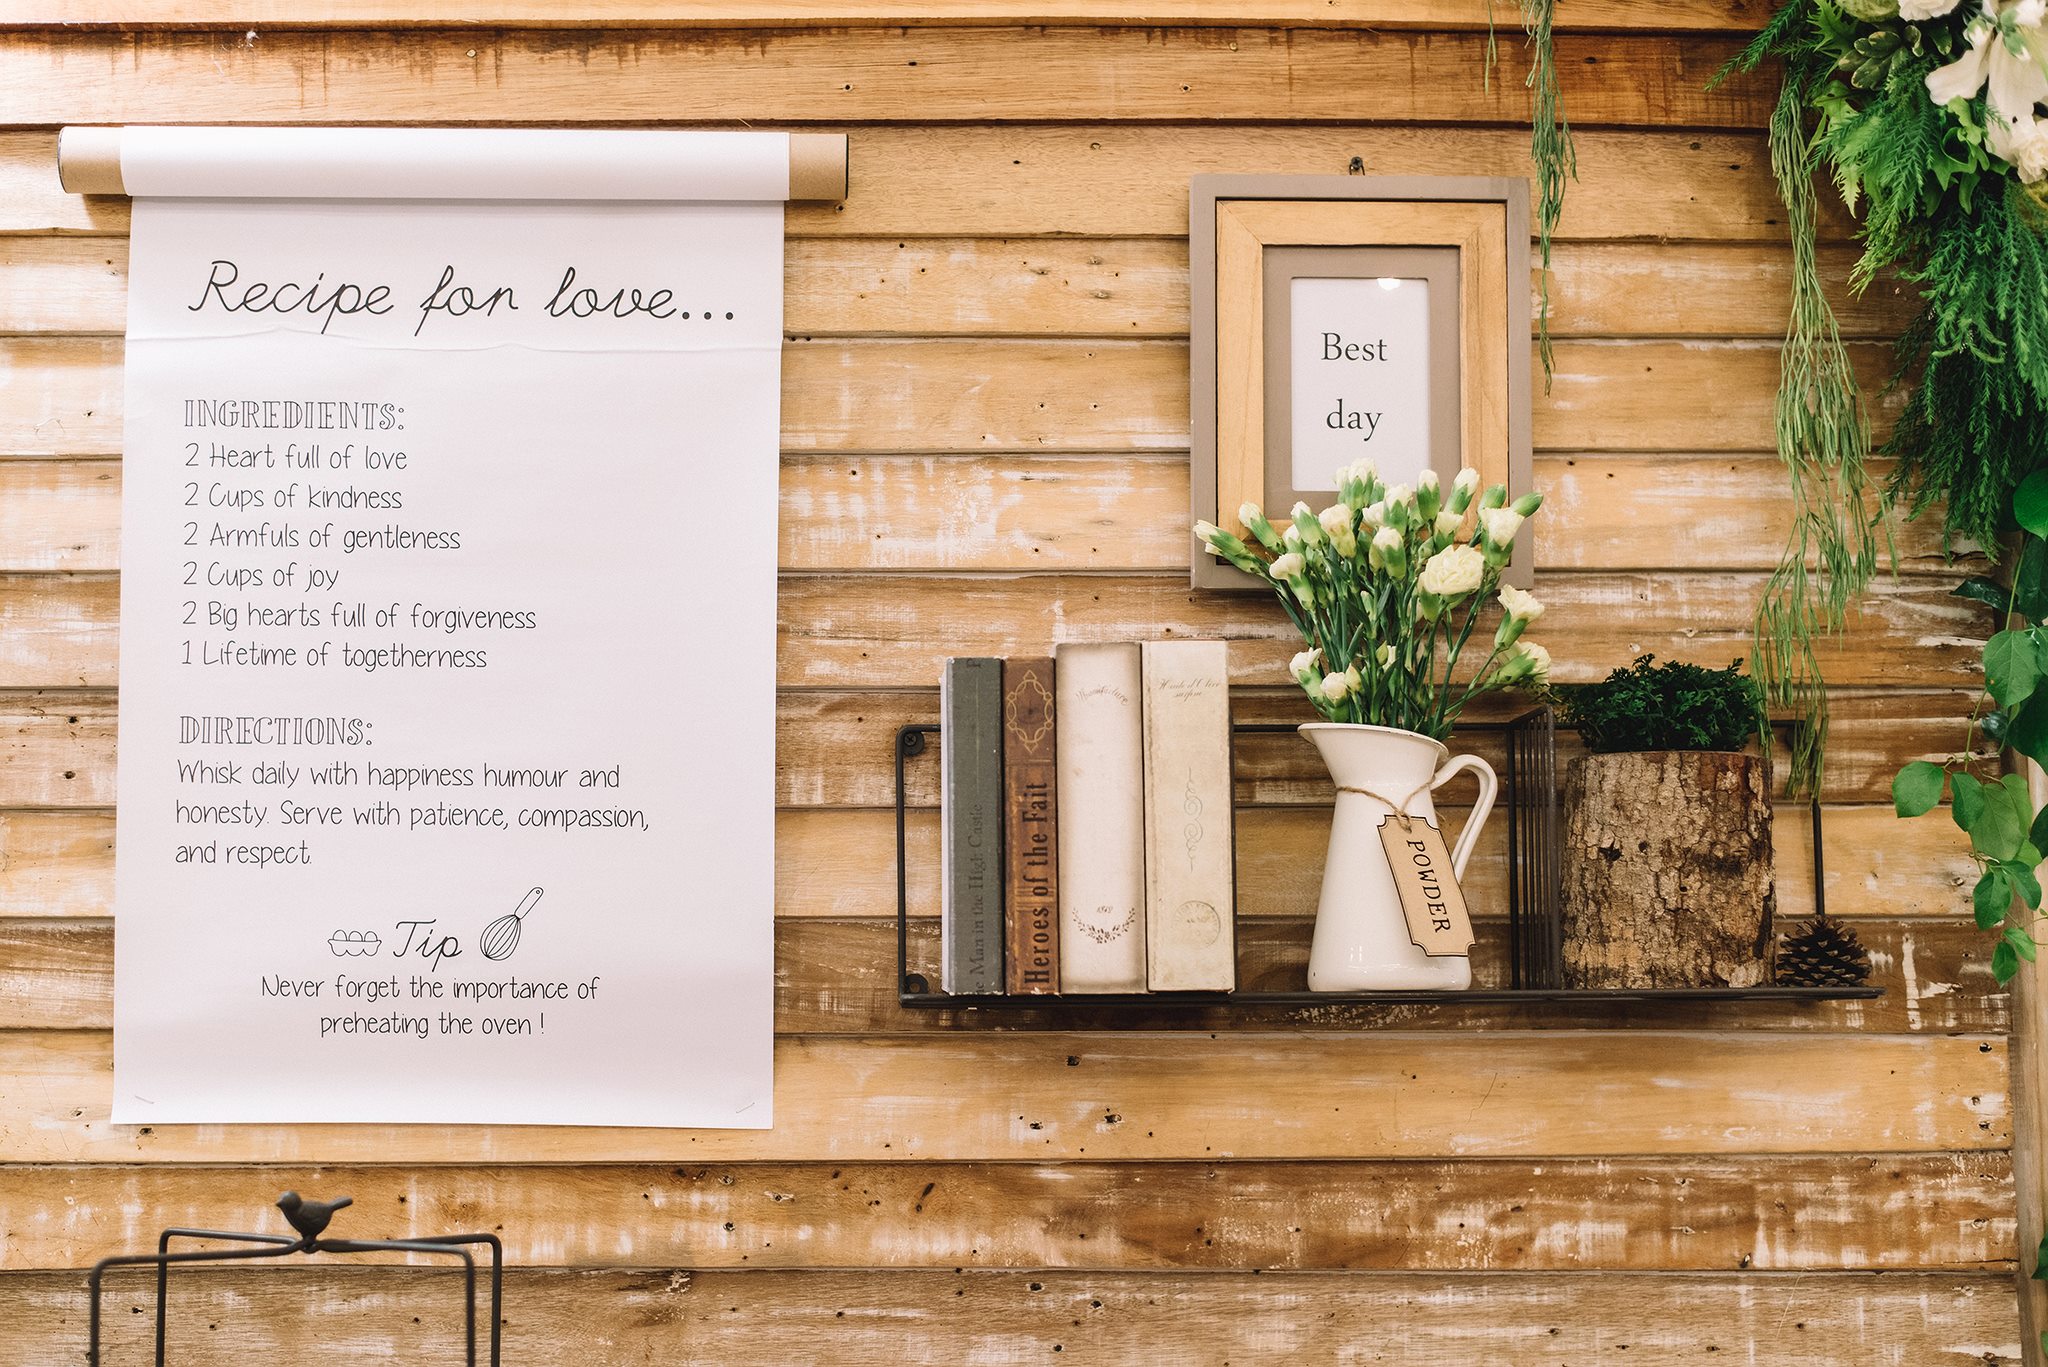 Recipe for love...
INGREDIENTS:
2 Heart full of love
2 Cups of kindness
2 Armfuls of gentleness
2 Cups of joy
2 Big hearts full of forgiveness
1 Lifetime of togetherness
DIRECTIONS:
Whisk daily with happiness humour and
honesty. Serve with patience, compassion,
and respect.
Tip
Never forget the importance of
preheating the oven !
Best
day
Man in the High Castle
Heroes of the Fait
Manufacture
surpise
POWDER